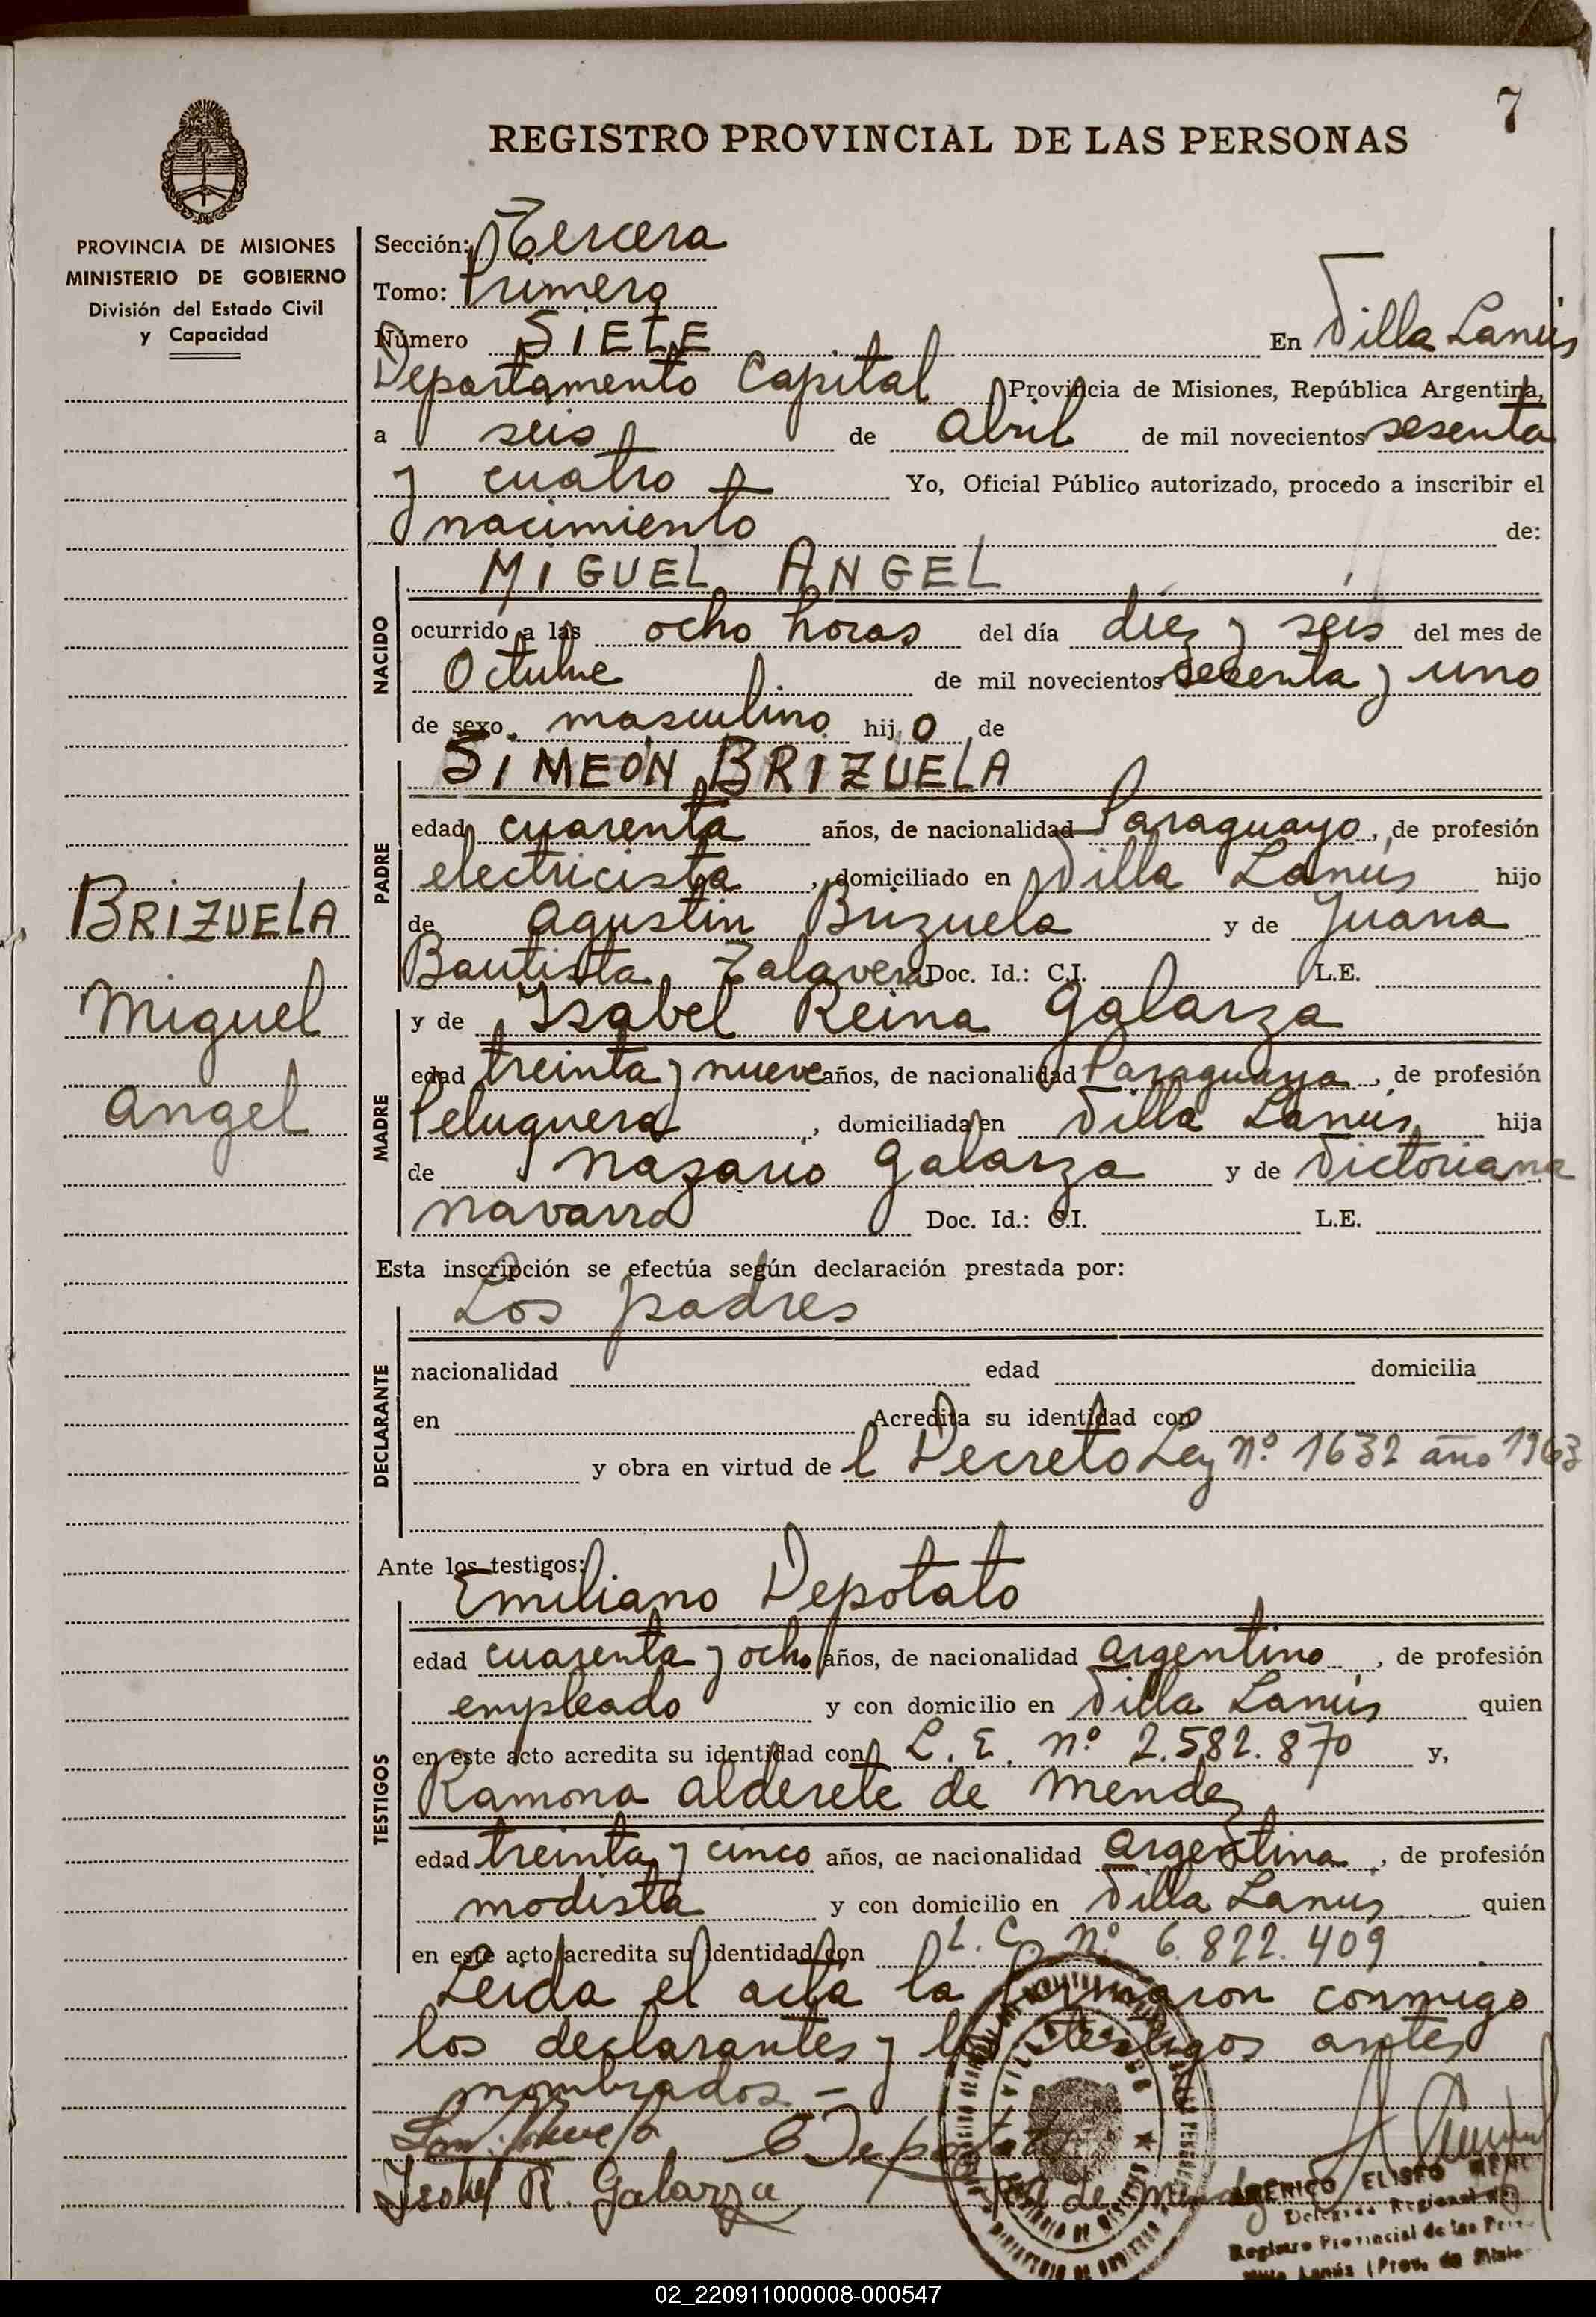 7
REGISTRO PROVINCIAL DE LAS PERSONAS
PROVINCIA DE MISIONES
MINISTERIO DE GOBIERNO
División del Estado Civil
y Capacidad
BRIZUELA
Miguel
Angel
Sección: Tercera
Tomo: Primero
Número SIETE En Villa Lanús
Departamento Capital Provincia de Misiones, República Argentina,
a seis de Abril de mil novecientos sesenta
y cuatro Yo, Oficial Público autorizado, procedo a inscribir el
nacimiento de:
NACIDO
MIGUEL ANGEL
ocurrido a las ocho horas del día diez y seis del mes de
Octubre de mil novecientos sesenta y uno
de sexo masculino hij o de
PADRE
SIMEÓN BRIZUELA
edad cuarenta años, de nacionalidad Paraguayo, de profesión
electricista, domiciliado en Villa Lanús hijo
de Agustin Brizuela y de Juana
Bautista Talavera Doc. Id.: C.I. L.E.
MADRE
y de Isabel Reina Galarza
edad treinta y nueve años, de nacionalidad Paraguaya, de profesión
Peluquera, domiciliada en Villa Lanús hija
de Nazario Galarza y de Victoriana
Navarro Doc. Id.: C.I. L.E.
Esta inscripción se efectúa según declaración prestada por:
DECLARANTE
Los padres
nacionalidad edad domicilia
en Acredita su identidad con
y obra en virtud de l Decreto Ley Nº 1632 año 1963
Ante los testigos:
TESTIGOS
Emiliano Depotato
edad cuarenta y ocho años, de nacionalidad argentino, de profesión
empleado y con domicilio en Villa Lanús quien
en este acto acredita su identidad con L. E. nº 2.582.870 y,
Ramona Alderete de Mendez
edad treinta y cinco años, de nacionalidad argentina, de profesión
modista y con domicilio en Villa Lanús quien
en este acto acredita su identidad con L. C. nº 6.822.409
Leida el acta la firmaron conmigo
los declarantes y los testigos antes
nombrados.-
E Depotato
Isabel R. Galarza de
AMERICO ELISEO
Delegado Regional
Registro Provincial de las
Villa Lanús (Prov. de
02_220911000008-000547